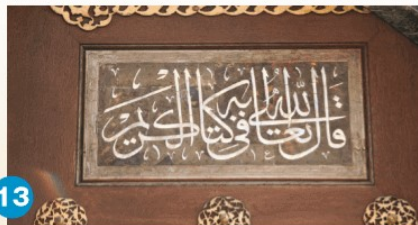 قال الله تعالى في كتابه الكريم
13